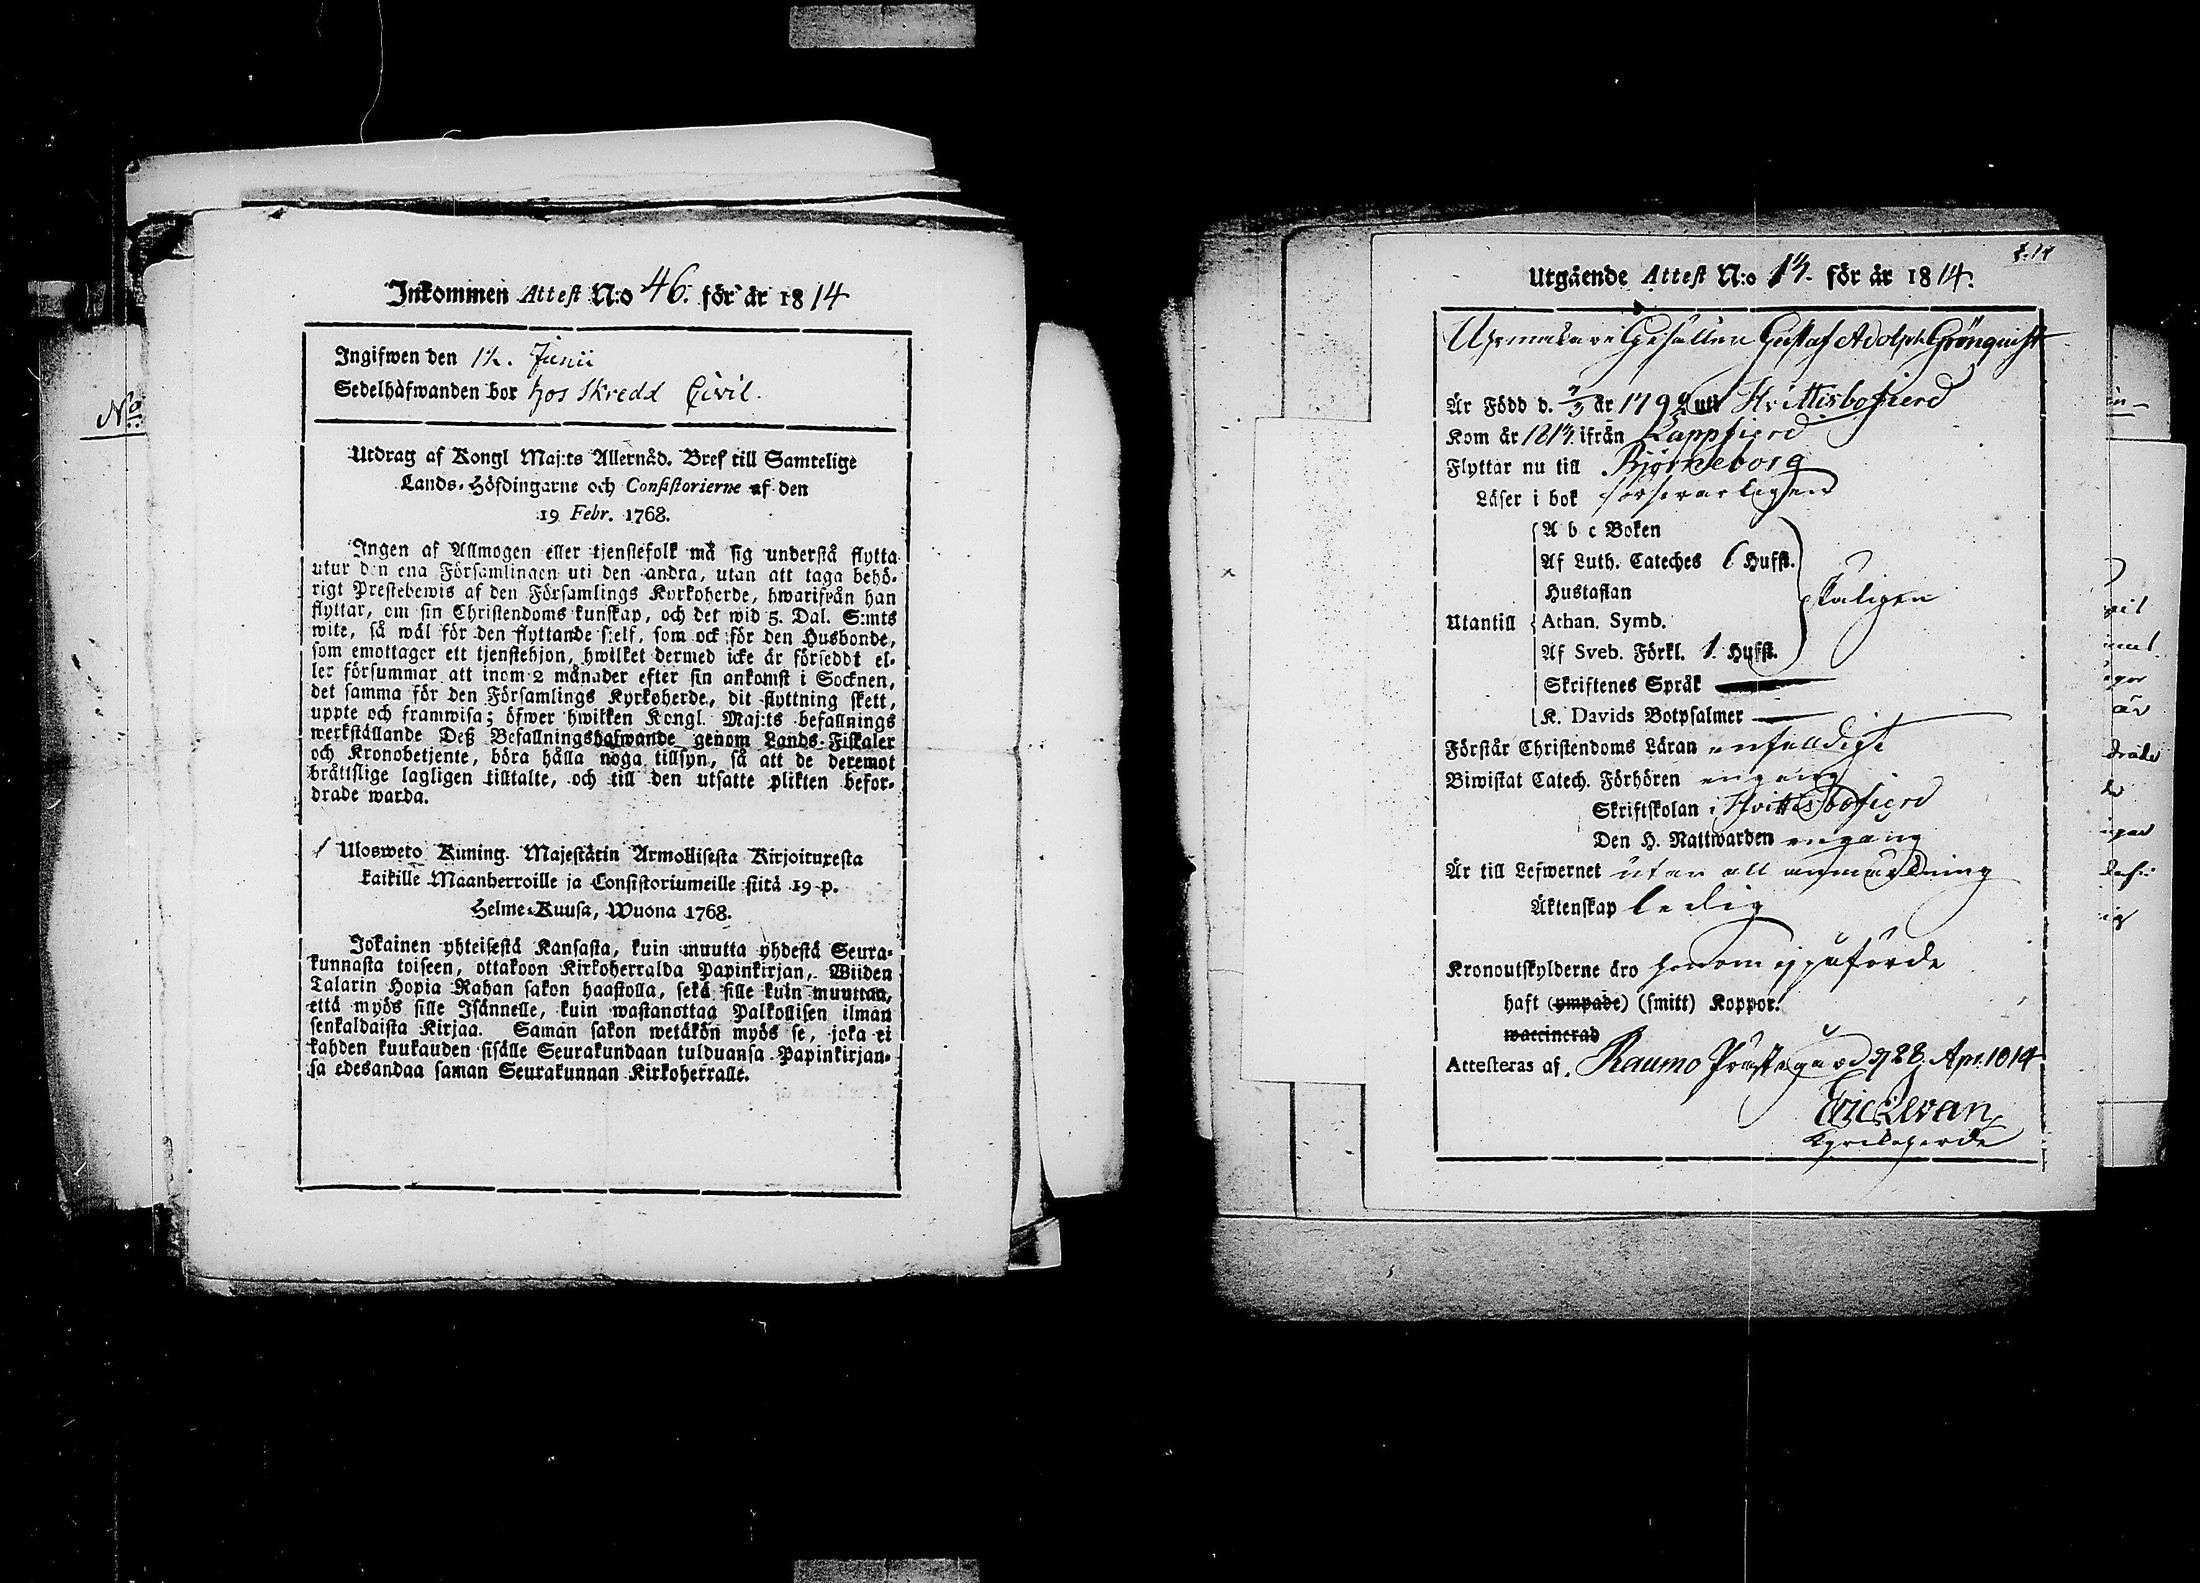 Inkommen Attest N:o 46. för år 1814
Ingifwen den 12. Junii
Sedelhafwanden bor hos Skredd Civil.
Utdrag af Kongl Maj:ts Allernåd. Bref till Samtelige
Lands-Höfdingarne och Consistorierne af den
19 Febr. 1768.
Ingen af Allmogen eller tjenstefolk må sig understå flytta
utur den ena Församlingen uti den andra, utan att taga behö-
rigt Prestebewis af den Församlings Kyrkoherde, hwarifrån han
flyttar, om sin Christendoms kunskap, och det wid 5. Dal. S:mts
wite, så wäl för den flyttande sjelf, som ock för den Husbonde,
som emottager ett tjenstehjon, hwilket dermed icke är försedt el-
ler försummar att inom 2 månader efter sin ankomst i Socknen,
det samma för den Församlings Kyrkoherde, dit flyttning skett,
uppte och framwisa; öfwer hwilken Kongl. Maj:ts befallnings
werkställande Deß Befallningshafwande genom Lands-Fiskaler
och Kronobetjente, böra hålla noga tillsyn, så att de deremot
bråttslige lagligen tilltalte, och till den utsatte plikten befor-
drade warda.
Ulosweto Kuning. Majestätin Armollisesta Kirjoituxesta
kaikille Maanherroille ja Consistoriumeille siitä 19 p.
Helme-Kuusa, Wuona 1768.
Jokainen yhteisestä Kansasta, kuin muutta yhdestä Seura-
kunnasta toiseen, ottakoon Kirkoherralda Papinkirjan, Wiiden
Talarin Hopia Rahan sakon haastolla, sekä sille kuin muuttaa,
että myös sille Isännelle, kuin wastanottaa Palkollisen ilman
senkaldaista Kirjaa. Saman sakon wetäkön myös se, joka ei
kahden kuukauden sisälle Seurakundaan tulduansa Papinkirjan-
sa edesandaa saman Seurakunnan Kirkoherralle.
N:o
Utgående Attest N:o 13. för år 1814.
Urmakare Gesällen Gustaf Adolph Grönquist
Är Född d. 7/3 år 179 uti Hvittisbofierd
Kom år 1813. ifrån Lappfierd
Flyttar nu till Björneborg
Läser i bok försvarligen
A b c Boken
Af Luth. Cateches 6 Hufst.
Hustaflan
skäligen
Utantill Athan. Symb.
Af Sveb. Förkl. 1 Hufst.
Skriftenes Språk
K. Davids Botpsalmer
Förstår Christendoms Läran enfaldigt
Biwistat Catech. Förhören en gång
Skriftskolan i Hvittisbofierd
Den H. Nattwarden en gång
Är till Lefwernet utan all anmärkning
Äktenskap ledig
Kronoutskylderne äro honom ej påförde
haft (ympade) (smitt) Koppor.
waccinerad
Attesteras af, Raumo Prästegård d 28 Apr. 1814
Eric Levan
Kyrkoherde